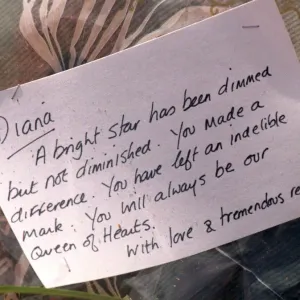 Diana
A bright star has been dimmed
but not diminished. You made a
difference. You have left an indelible
mark. You will always be our
Queen of Hearts.
With love & tremendous re